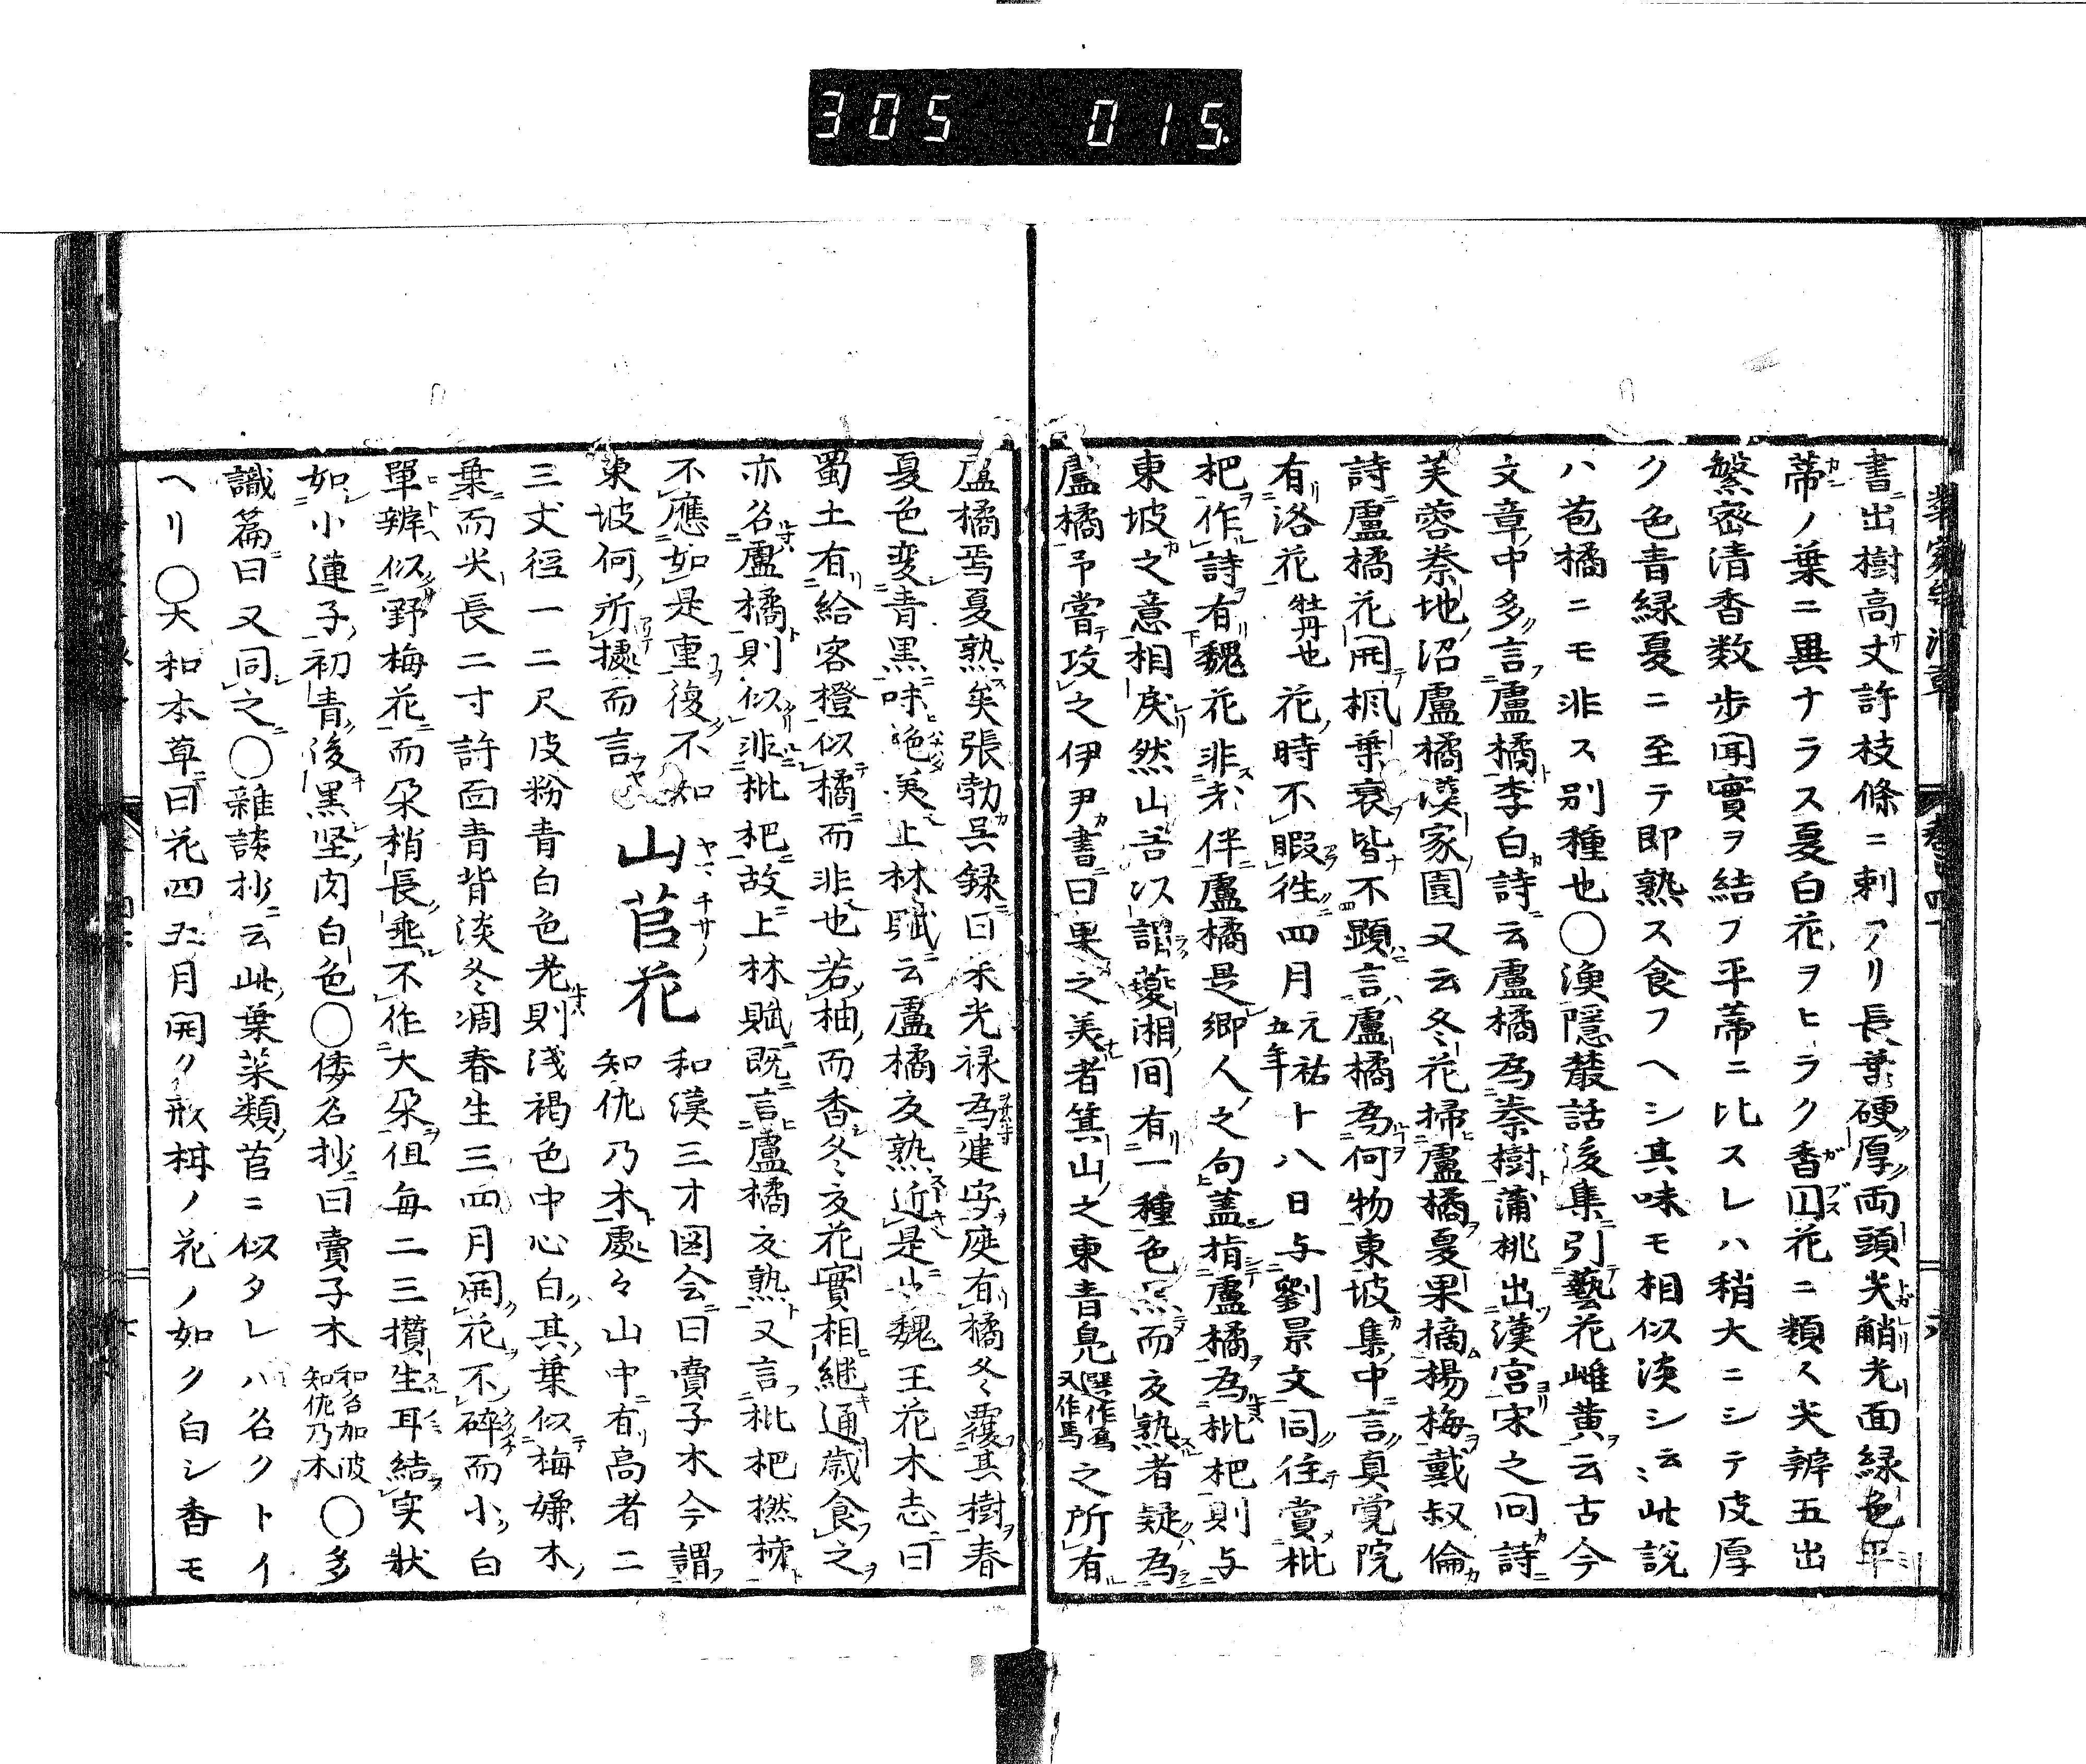 305 015
書出樹高丈許枝條ニ刺アリ長葉硬厚両頭尖觧光面緑色平
蒂ノ葉ニ異ナラス夏白花ヲヒラク香囚花ニ類ス尖辨五出
繁密清香数歩聞實ヲ結フ平蒂ニ比スレハ稍大ニシテ皮厚
ク色青緑夏ニ至テ即熟ス食フヘシ其味モ相似淡シ云〻此説
ハ苞橘ニモ非ス別種也〇漁隱叢話後集引藝花雌黄云古今
文章中多言盧橘李白詩云盧橘為秦樹蒲桃出漢宮宋之问詩
芙蓉秦地沼盧橘漢家園又云冬花掃盧橘夏果摘楊梅戴叔倫
詩盧橘花開楓葉衰皆不顕言盧橘為何物東坡集中言真覚院
有洛花牡丹也花時不暇往四月元祐五年十八日与劉景文同往賞枇
杷作詩有魏花非老伴盧橘是郷人之句蓋指盧橘為枇杷則与
東坡之意相戻然山吾以謂夔湘间有一種色黒而夏熟者疑為
盧橘予嘗攻之伊尹書曰果之美者箕山之東青鳧之所有
盧橘焉夏熟矣張勃呉録曰朱光禄為建安庭有橘冬覆其樹春
夏色変青黒味絶美上林賦云盧橘夏熟近是也魏王花木志曰
蜀土有給客橙似橘而非也若柚而香冬夏花實相継通歳食之
亦名盧橘則似非枇杷故上林賦既言盧橘夏熟又言枇杷橪柿
不應如是重復不知
東坡何所據而言
山苣花
ヤマチサノ
和漢三才図会曰賣子木今謂
知佐乃木處々山中有高者二
三丈径一二尺皮粉青白色老則浅褐色中心白其葉似梅嫌木
葉而尖長二寸許面青背淡冬凋春生三四月開花不碎而小白
單辨似野梅花而朶稍長垂不作大朶但毎二三攅生耳結实状
如小蓮子初青後黒堅肉白色〇倭名抄曰賣子木和名加波知佐乃木〇多
識篇曰又同之〇雜談抄云此葉菜類苣ニ似タレハ名クトイ
ヘリ〇大和本草曰花四五月開ク形梅ノ花ノ如ク白シ香モ